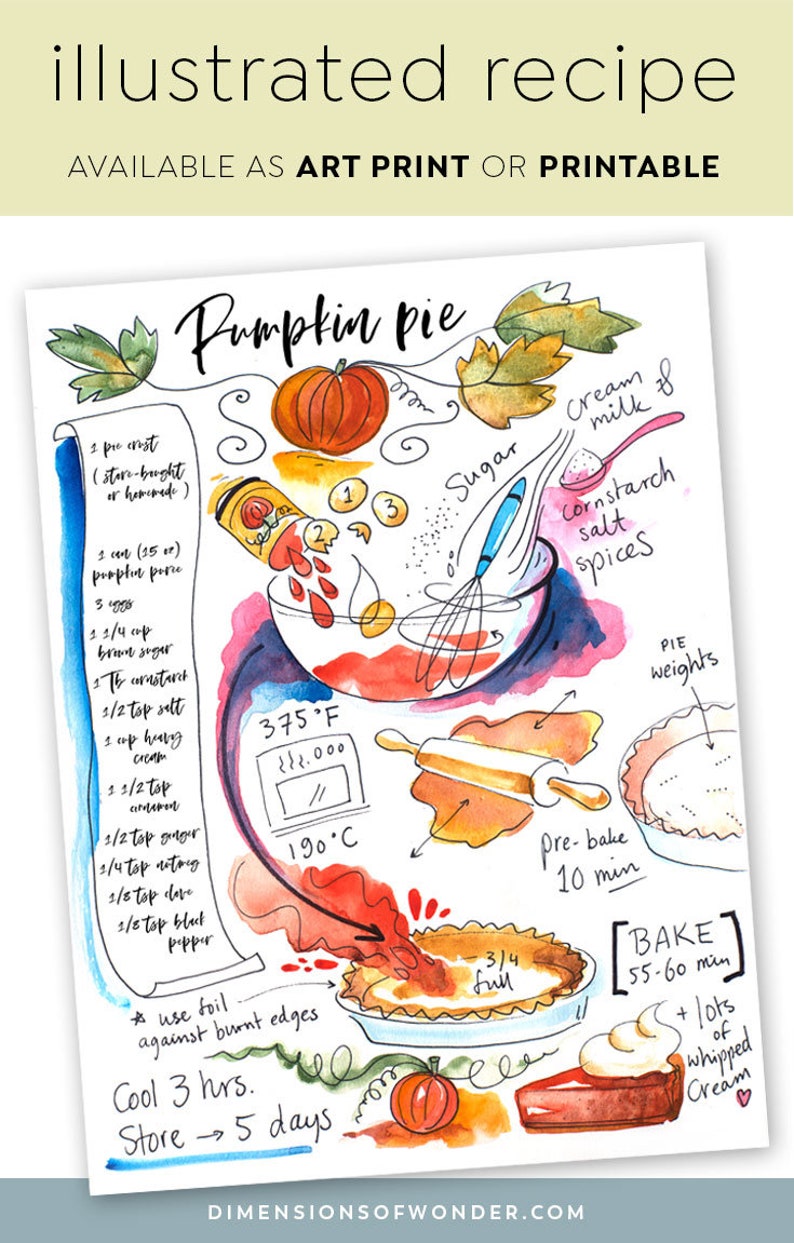 illustrated recipe
AVAILABLE AS ART PRINT OR PRINTABLE
Pumpkin pie
1 pie crust
(store-bought
or homemade)
1 can (15 oz)
pumpkin puree
3 eggs
1 1/4 cup
brown sugar
1 Tb cornstarch
1/2 tsp salt
1 cup heavy
cream
1 1/2 tsp
cinnamon
1/2 tsp ginger
1/4 tsp nutmeg
1/8 tsp clove
1/8 tsp black
pepper
1
2
3
Sugar
cream &
milk
cornstarch
salt
spices
375°F
190°C
PIE
weights
pre-bake
10 min
3/4
full
[BAKE
55-60 min]
* use foil
against burnt edges
+ lots
of
whipped
cream
Cool 3 hrs.
Store → 5 days
DIMENSIONSOFWONDER.COM